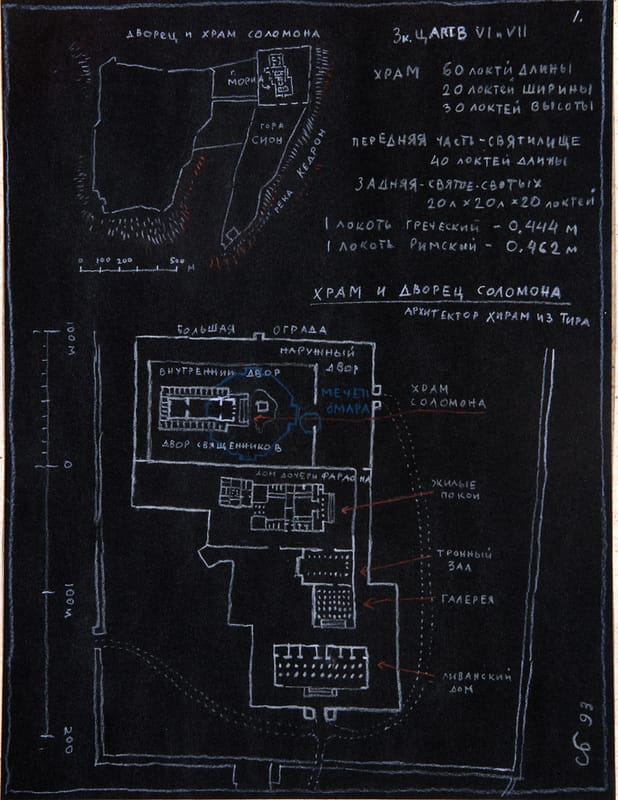 1.
ДВОРЕЦ И ХРАМ СОЛОМОНА
Г. МОРИА
ГОРА
СИОН
РЕКА КЕДРОН
0 100 200 500 М
3 к. ЦАРТВ VI и VII
ХРАМ 60 ЛОКТИ ДЛИНЫ
20 ЛОКТЕЙ ШИРИНЫ
30 ЛОКТЕЙ ВЫСОТЫ
ПЕРЕДНЯЯ ЧАСТЬ-СВЯТИЛИЩЕ
40 ЛОКТЕЙ ДЛИНЫ
ЗАДНЯЯ-СВЯТОЕ-СВЯТЫХ
20 л × 20 л × 20 ЛОКТЕЙ
1 ЛОКОТЬ ГРЕЧЕСКИЙ - 0,444 м
1 ЛОКОТЬ РИМСКИЙ - 0,462 м
ХРАМ И ДВОРЕЦ СОЛОМОНА
АРХИТЕКТОР ХИРАМ ИЗ ТИРА
100 М
0
100 М
200
БОЛЬШАЯ ОГРАДА
НАРУЖНЫЙ
ДВОР
ВНУТРЕННИЙ ДВОР
МЕЧЕТЬ
ОМАРА
ХРАМ
СОЛОМОНА
ДВОР СВЯЩЕННИКОВ
ДОМ ДОЧЕРИ ФАРАОНА
ЖИЛЫЕ
ПОКОИ
ТРОННЫЙ
ЗАЛ
ГАЛЕРЕЯ
ЛИВАНСКИЙ
ДОМ
СБ 93